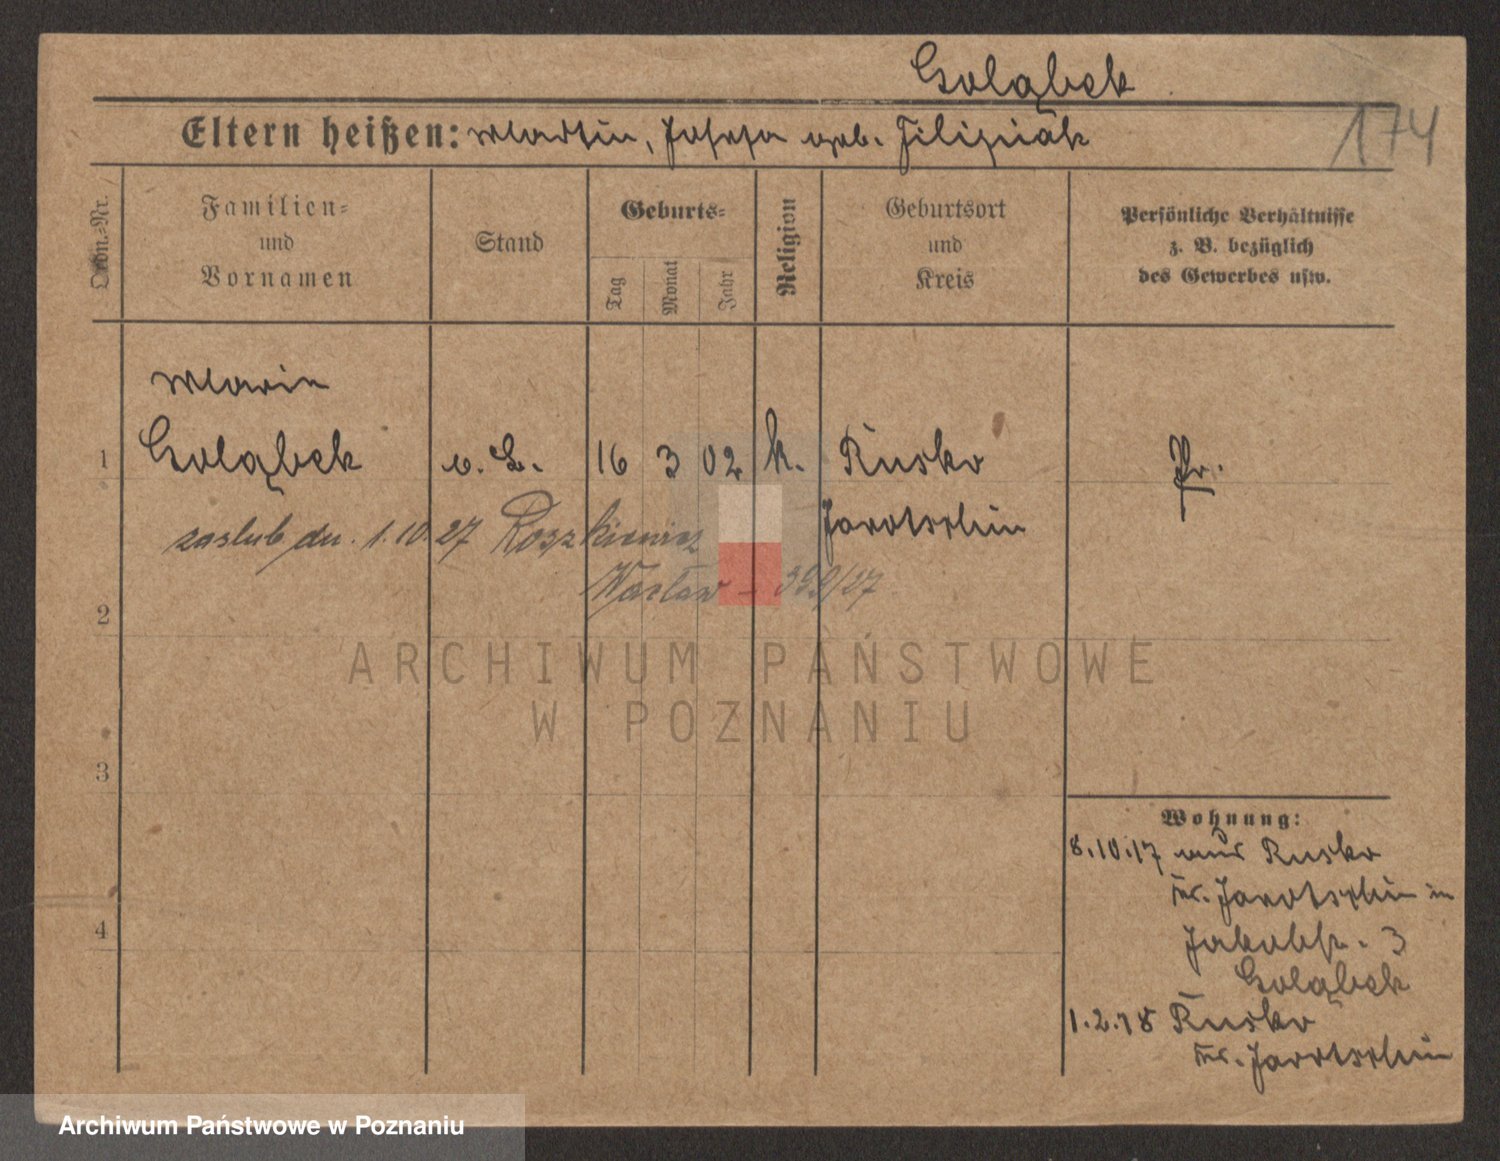 Goląbek
174
Eltern heißen: Martin, Josefa geb. Filipiak
Ordn.-Nr.
Familien-
und
Vornamen
Stand
Geburts-
Tag
Monat
Jahr
Religion
Geburtsort
und
Kreis
Persönliche Verhältnisse
z. B. bezüglich
des Gewerbes usw.
Marie
1 Goląbek 16 3 02 k. Rusko Pr.
Jarotschin
zaslub dn. 1.10.27 Roszkiewicz
Wacław - 399/27
2
3
4
ARCHIWUM PAŃSTWOWE
W POZNANIU
Wohnung:
8.10.17 aus Rusko
Kr. Jarotschin in
Jakobstr. 3
Goląbek
1.2.18 Rusko
Kr. Jarotschin
Archiwum Państwowe w Poznaniu